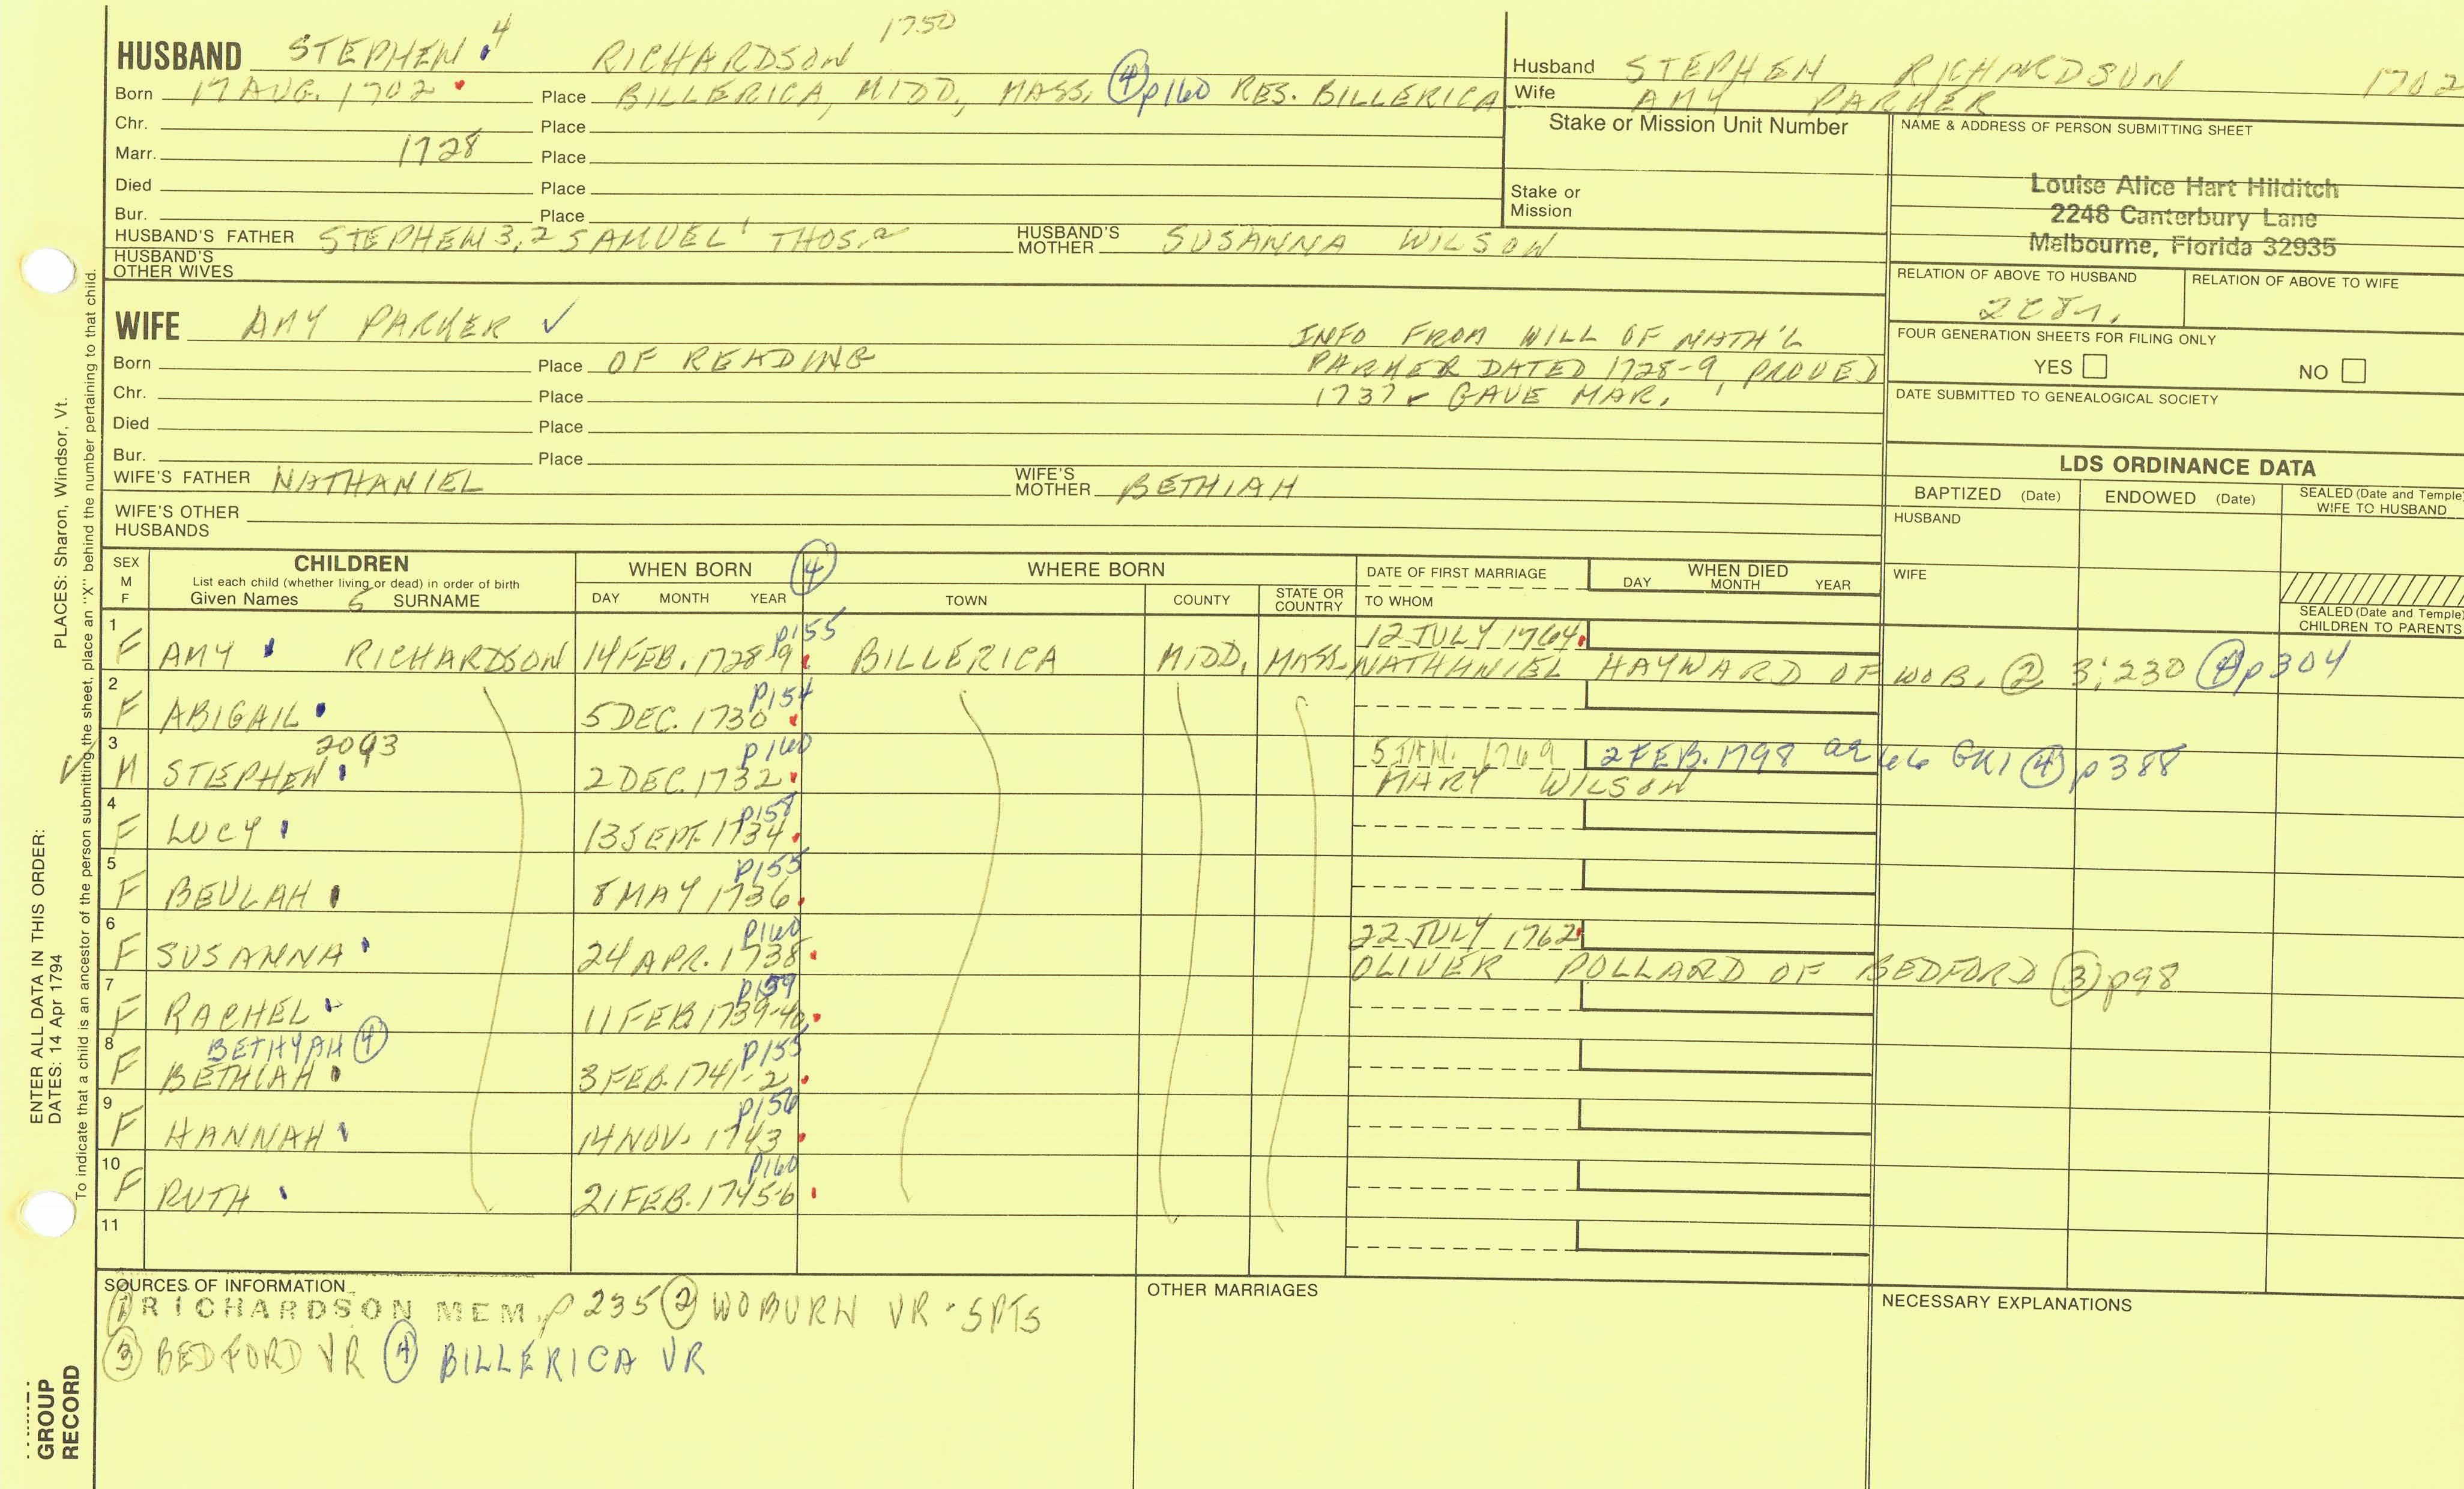 1750
HUSBAND STEPHEN 4 RICHARDSON
Born 17 AUG. 1702 Place BILLERICA, MIDD., MASS. ④ p160 RES. BILLERICA
Chr. Place
Marr. 1728 Place
Died Place
Bur. Place
HUSBAND'S FATHER STEPHEN 3, 2 SAMUEL 1 THOS. 2 HUSBAND'S MOTHER SUSANNA WILSON
HUSBAND'S OTHER WIVES
Husband STEPHEN RICHARDSON 1702
Wife AMY PARKER
Stake or Mission Unit Number
Stake or
Mission
NAME & ADDRESS OF PERSON SUBMITTING SHEET
Louise Alice Hart Hilditch
2248 Canterbury Lane
Melbourne, Florida 32935
RELATION OF ABOVE TO HUSBAND RELATION OF ABOVE TO WIFE
FOUR GENERATION SHEETS FOR FILING ONLY
YES NO
DATE SUBMITTED TO GENEALOGICAL SOCIETY
WIFE AMY PARKER ✓
Born Place OF READING
Chr. Place
Died Place
Bur. Place
INFO FROM WILL OF NATH'L
PARKER DATED 1728-9, PROVED
1737 - GAVE MAR.
WIFE'S FATHER NATHANIEL WIFE'S MOTHER BETHIAH
WIFE'S OTHER
HUSBANDS
LDS ORDINANCE DATA
BAPTIZED (Date) ENDOWED (Date) SEALED (Date and Temple) WIFE TO HUSBAND
HUSBAND
WIFE
SEALED (Date and Temple)
CHILDREN TO PARENTS
SEX M F CHILDREN WHEN BORN ④ WHERE BORN DATE OF FIRST MARRIAGE WHEN DIED
List each child (whether living or dead) in order of birth
Given Names 5 SURNAME DAY MONTH YEAR TOWN COUNTY STATE OR COUNTRY TO WHOM DAY MONTH YEAR
p155 12 JULY 1764
1 F AMY RICHARDSON 14 FEB. 1728-9 BILLERICA MIDD. MASS. NATHANIEL HAYWARD OF WOB. ② 3:230 ④ p304
p154
2 F ABIGAIL 5 DEC. 1730
2093 p160 5 JAN. 1769 2 FEB. 1798 ae 66 GR1 ④ p388
3 ✓ M STEPHEN 2 DEC. 1732 MARY WILSON
p158
4 F LUCY 13 SEPT. 1734
p155
5 F BEULAH 8 MAY 1736
p160 22 JULY 1762
6 F SUSANNA 24 APR. 1738 OLIVER POLLARD OF BEDFORD ③ p98
p159
7 F RACHEL 11 FEB 1739-40
BETHYAH ④ p155
8 F BETHIAH 3 FEB. 1741-2
p156
9 F HANNAH 14 NOV. 1743
p160
10 F RUTH 21 FEB. 1745-6
11
SOURCES OF INFORMATION
① RICHARDSON MEM. p 235 ② WOBURN VR - SPTS
③ BEDFORD VR ④ BILLERICA VR
OTHER MARRIAGES
NECESSARY EXPLANATIONS
ENTER ALL DATA IN THIS ORDER:
DATES: 14 Apr 1794 PLACES: Sharon, Windsor, Vt.
To indicate that a child is an ancestor of the person submitting the sheet, place an "X" behind the number pertaining to that child.
GROUP
RECORD